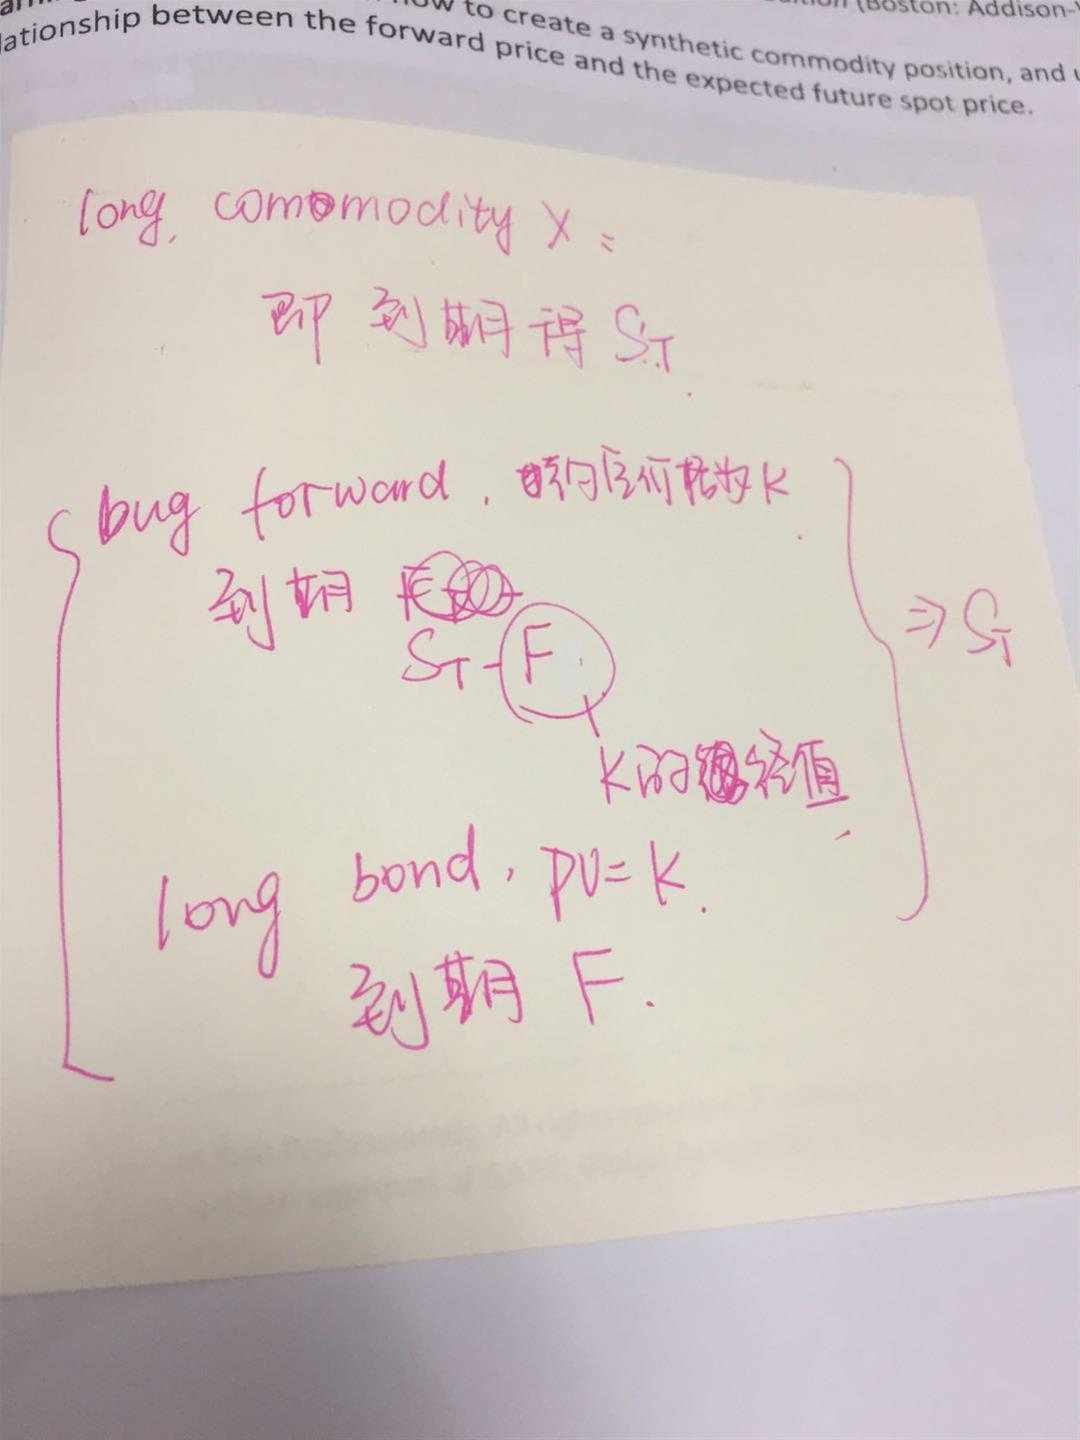 (Boston: Addison-
ow to create a synthetic commodity position, and
lationship between the forward price and the expected future spot price.
long, commodity X :
即 到期得 ST
bug forward. 价格为K
到期
ST - F
K的终值
long bond. PV=K.
到期 F.
⇒ ST